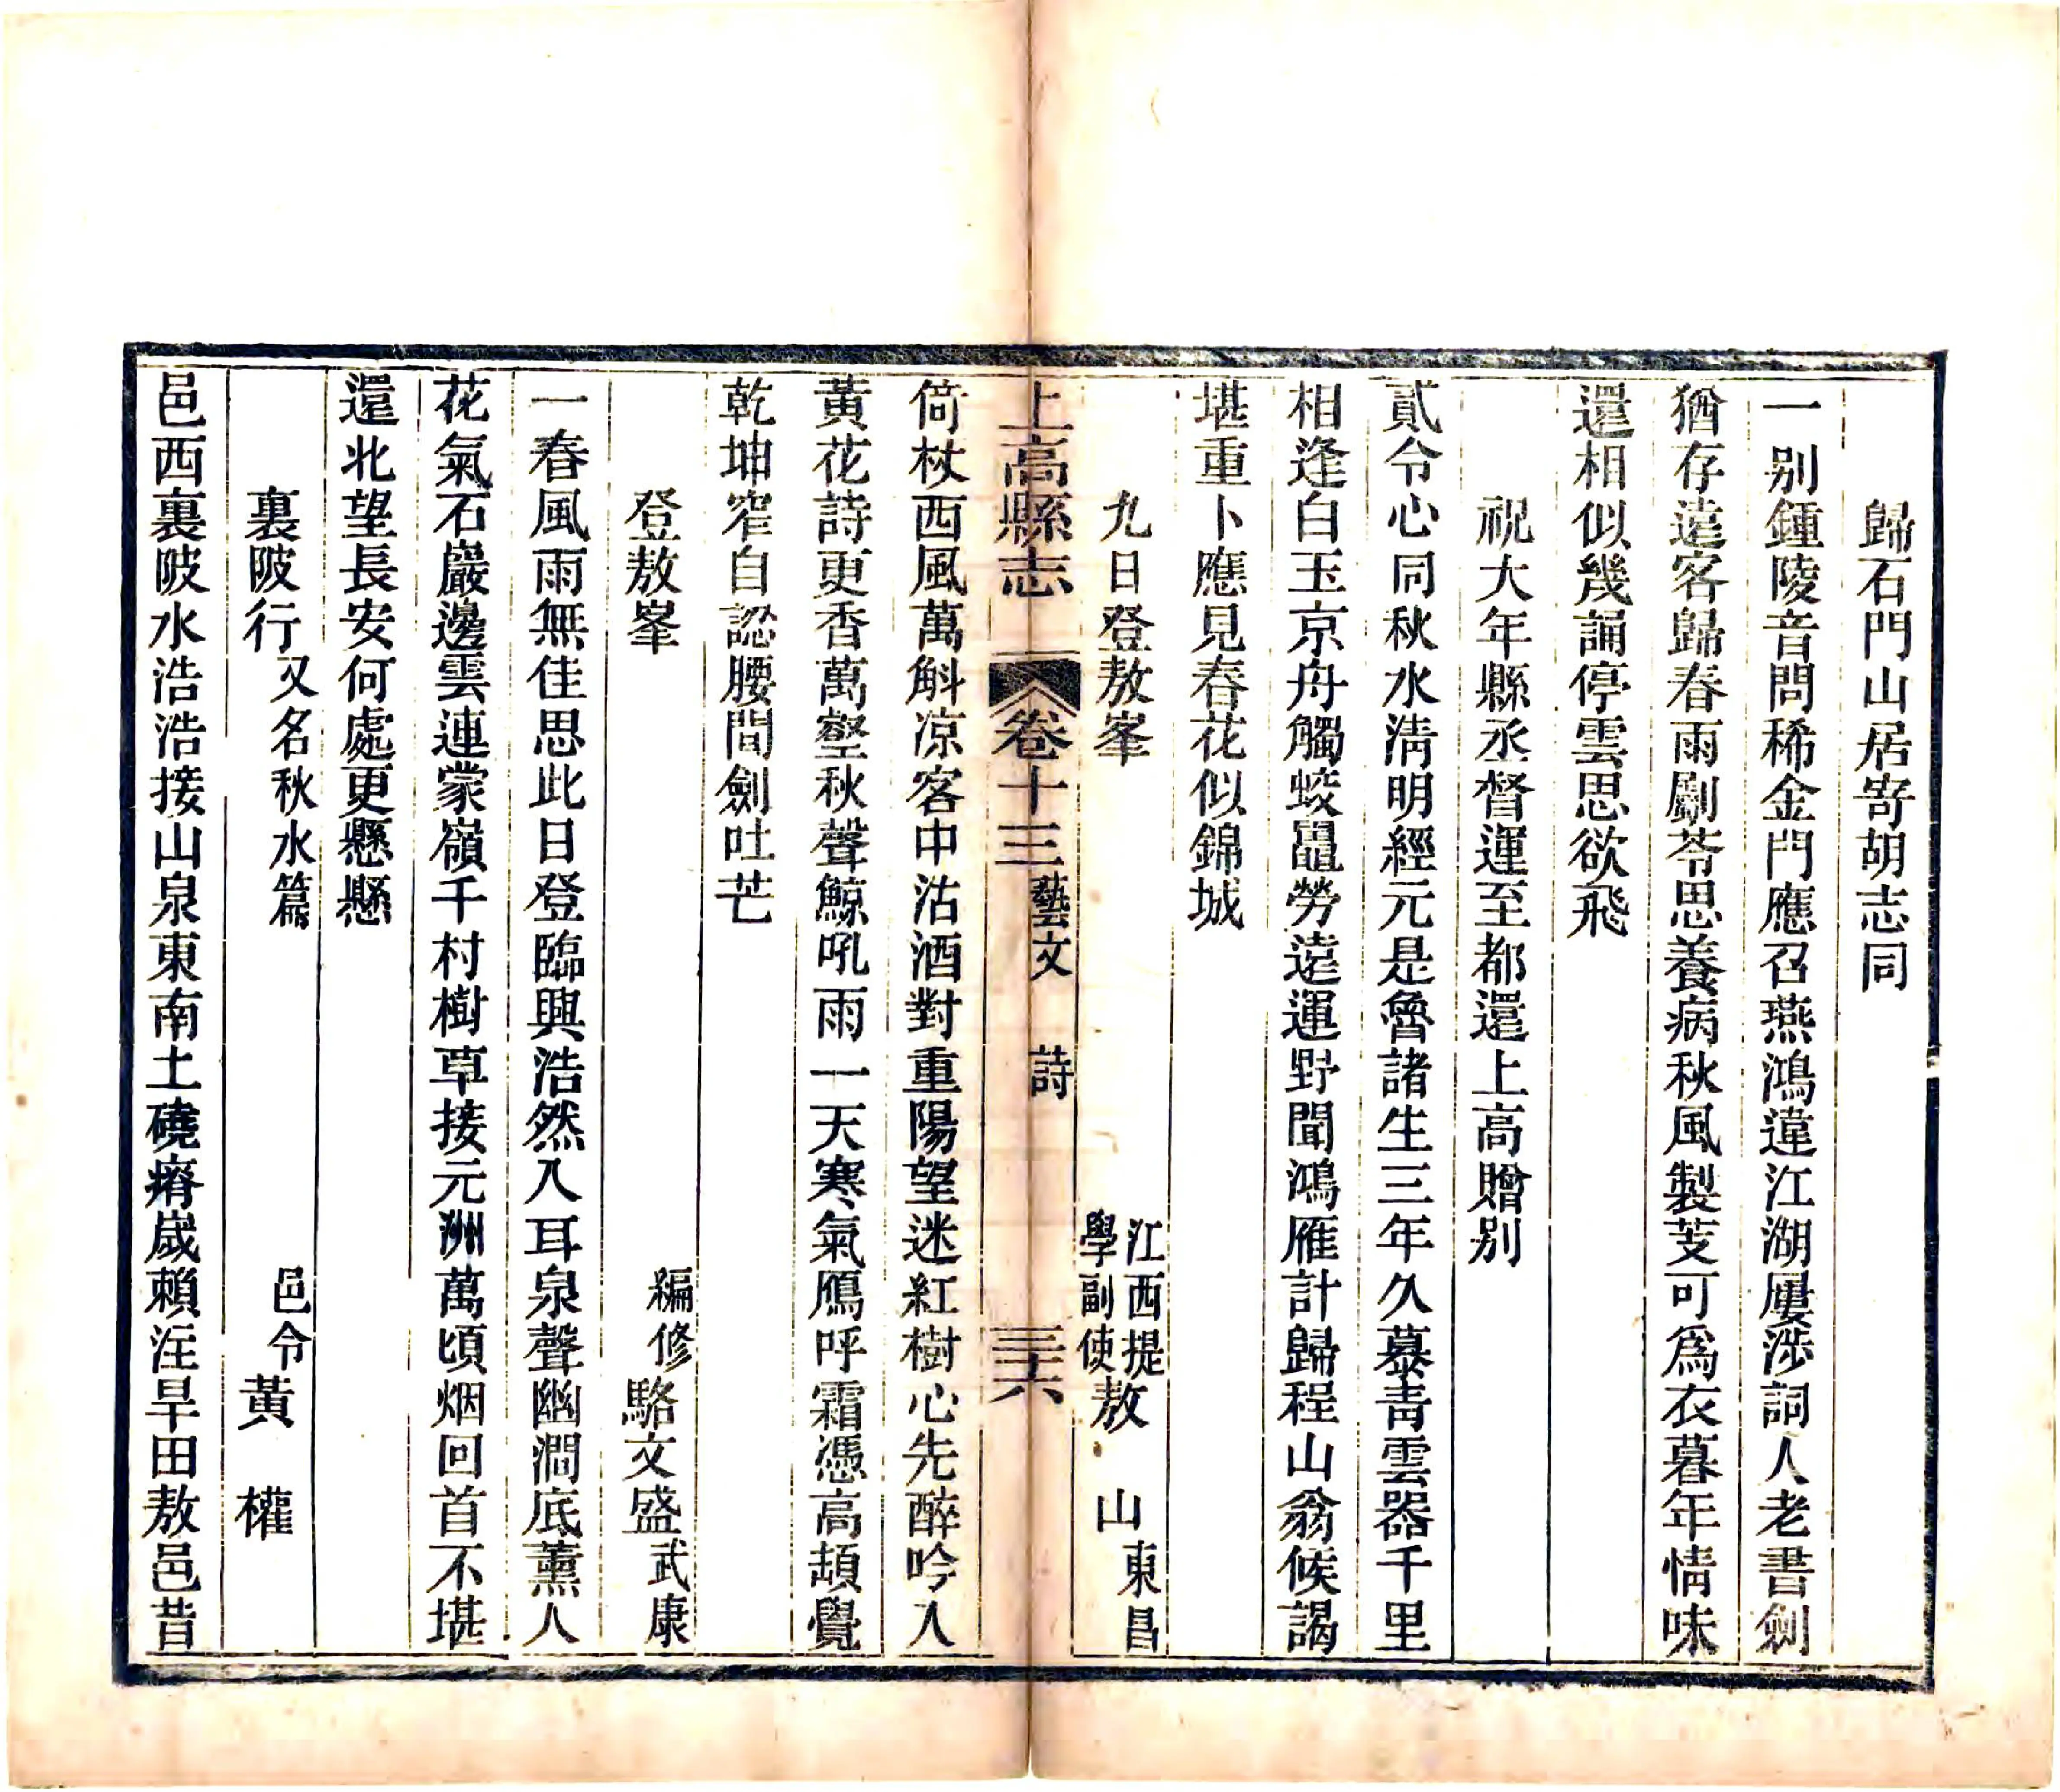 歸石門山居寄胡志同
一别鍾陵音問稀金門應召燕鴻違江湖屢涉詞人老書劍
猶存遠客歸春雨劚苓思養病秋風製芰可爲衣暮年情味
還相似幾誦停雲思欲飛
祝大年縣丞督運至都還上高贈别
貳令心同秋水淸明經元是魯諸生三年久慕靑雲器千里
相逢白玉京舟觸蛟鼉勞遠運野聞鴻雁計歸程山翁候謁
堪重卜應見春花似錦城
九日登敖峯 江西提學副使敖 山東昌
上高縣志 卷十三 藝文 詩 三十六
倚杖西風萬斛凉客中沽酒對重陽望迷紅樹心先醉吟入
黃花詩更香萬壑秋聲鯨吼雨一天寒氣鴈呼霜憑高頡覺
乾坤窄自認腰間劍吐芒
登敖峯 編修駱文盛武康
一春風雨無佳思此日登臨興浩然入耳泉聲幽澗底薰人
花氣石巖邊雲連蒙嶺千村樹草接元洲萬頃烟回首不堪
還北望長安何處更懸懸
裏陂行又名秋水篇 邑令黃 權
邑西裏陂水浩浩接山泉東南土磽瘠歲賴注旱田敖邑昔